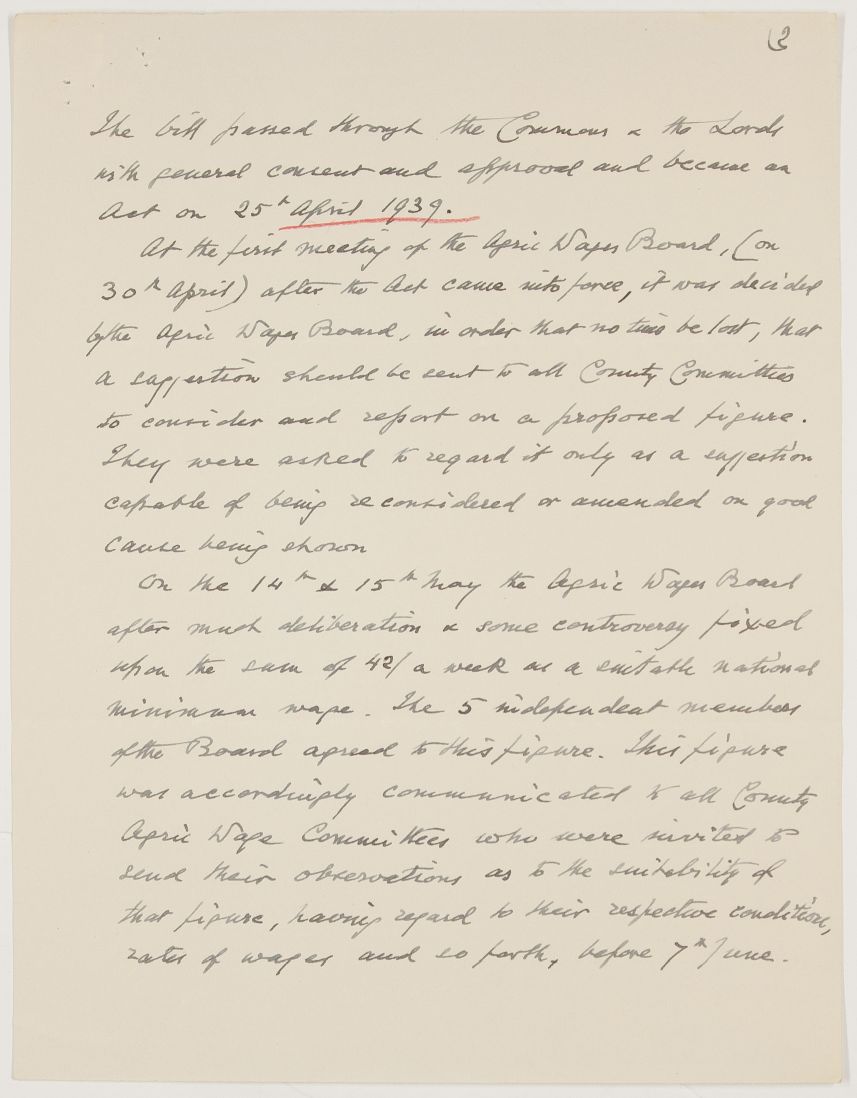 (2
The bill passed through the Commons & the Lords
with general consent and approval and became an
Act on 25th April 1939.
At the first meeting of the Agric Wages Board, (on
30th April) after the Act came into force, it was decided
by the Agric Wages Board, in order that no time be lost, that
a suggestion should be sent to all County Committees
to consider and report on a proposed figure.
They were asked to regard it only as a suggestion
capable of being reconsidered or amended on good
cause being shown
On the 14th & 15th May the Agric Wages Board
after much deliberation & some controversy fixed
upon the sum of 42/ a week as a suitable national
minimum wage. The 5 independent members
of the Board agreed to this figure. This figure
was accordingly communicated to all County
Agric Wage Committees who were invited to
send their observations as to the suitability of
that figure, having regard to their respective conditions,
rates of wages and so forth, before 7th June.